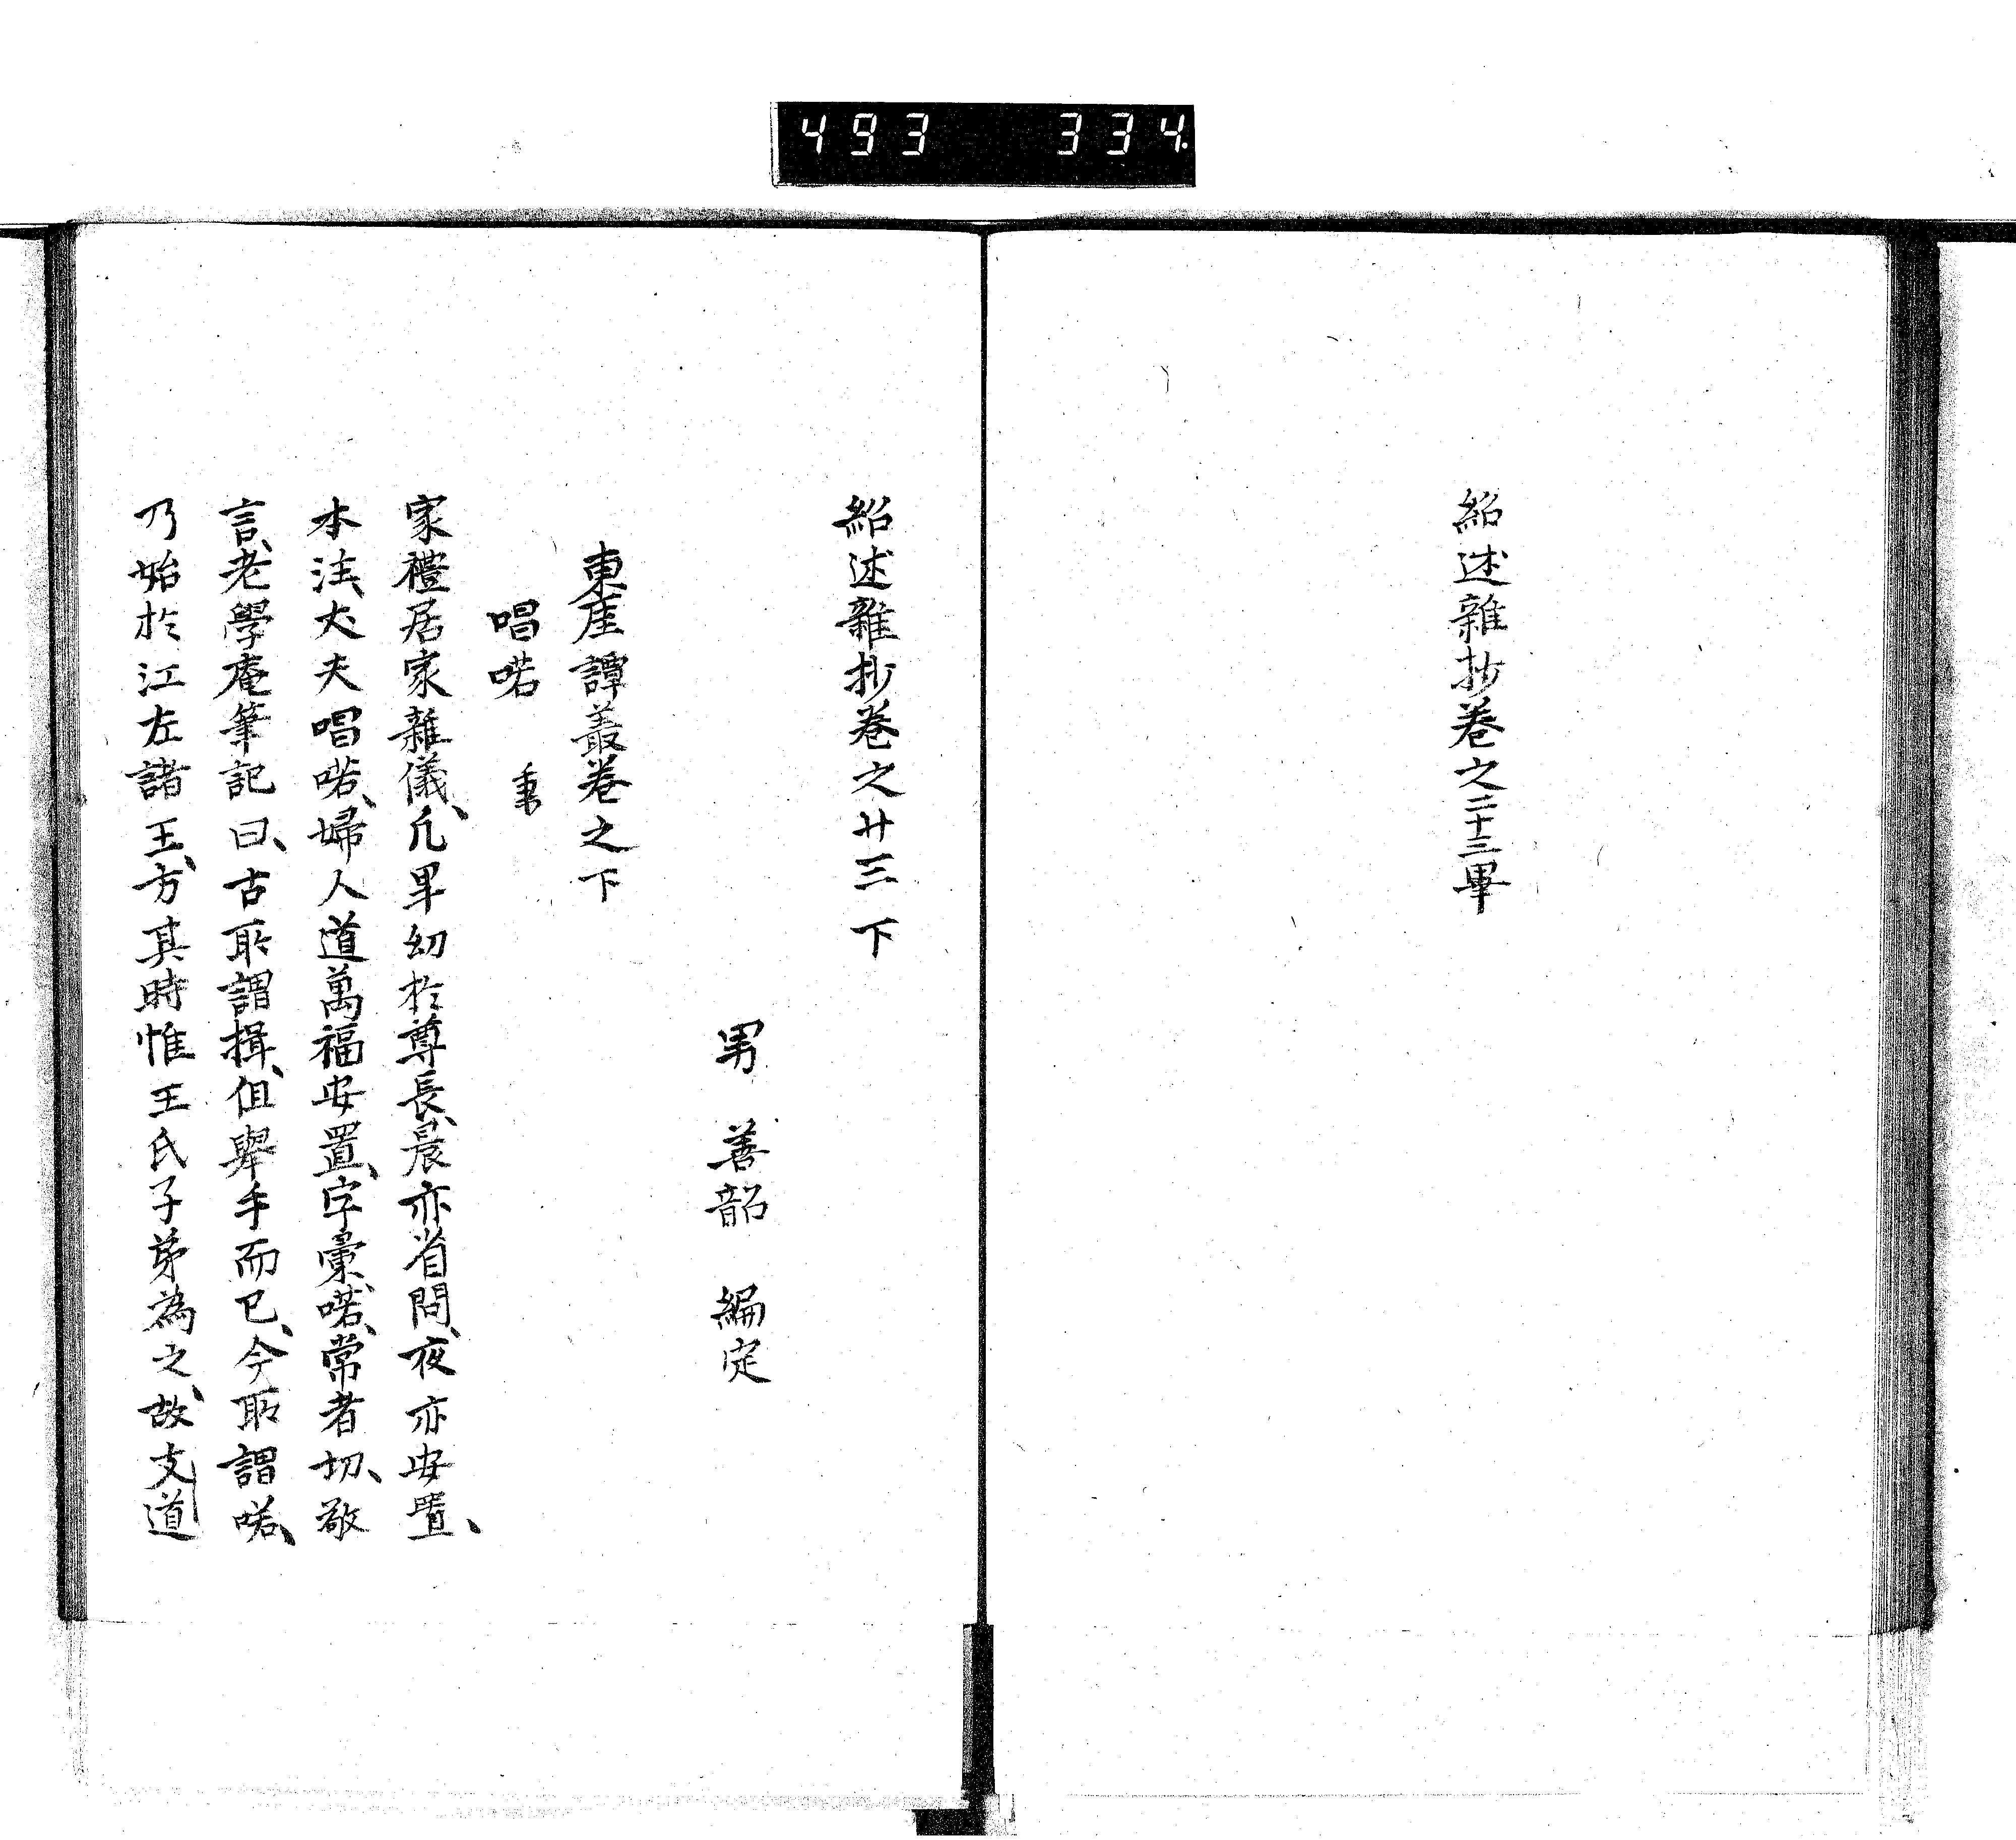 493 334
紹述雜抄巻之二十三畢
紹述雜抄巻之廿三下
男 善韶 編定
東厓譚叢巻之下
唱喏
家禮居家雜儀、凡卑幼於尊長、晨亦省問、夜亦安置、
本注、丈夫唱喏、婦人道萬福安置、字彙、喏、常者切、敬
言、老學庵筆記曰、古所謂揖、但舉手而已、今所謂喏、
乃始於江左諸王、方其時惟王氏子弟為之、故支道